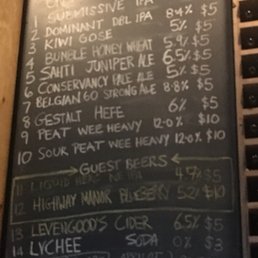 1 SUBMISSIVE IPA 8.4% $5
2 DOMINANT DBL IPA
3 KIWI GOSE 5% $5
4 BUMBLE HONEY WHEAT 5.9% $5
5 SAHTI JUNIPER ALE 6.5% $5
6 CONSERVANCY PALE ALE 5% $5
7 BELGIAN 60 STRONG ALE 8.8% $5
8 GESTALT HEFE 6% $5
9 PEAT WEE HEAVY 12.0% $10
10 SOUR PEAT WEE HEAVY 12.0% $10
GUEST BEERS
11. LIQUID HERO NE IPA 4.7% $5
12. HIGHWAY MANOR 5.2% $10
13 LEVENGOOD'S CIDER 6.5% $5
14 LYCHEE SODA 0% $3